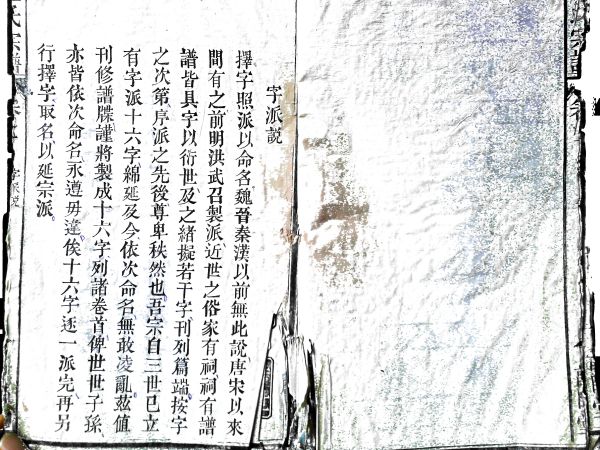 字派説
擇字照派以命名魏晉秦漢以前無此說唐宋以來
間有之前明洪武召製派近世之俗家有祠祠有譜
譜皆具字以衍世及之緒擬若干字刊列篇端按字
之次第序派之先後尊卑秩然也吾宗自三世已立
有字派十六字綿延及今依次命名無敢凌亂茲值
刊修譜牒謹將製成十六字列諸卷首俾世世子孫
亦皆依次命名永遵毋違俟十六字迓一派完再另
行擇字取名以延宗派
氏宗譜
字派說